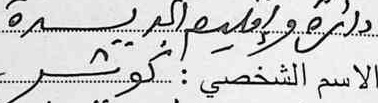 دائرة وإقليم الجديدة
الاسم الشخصي : كوثر